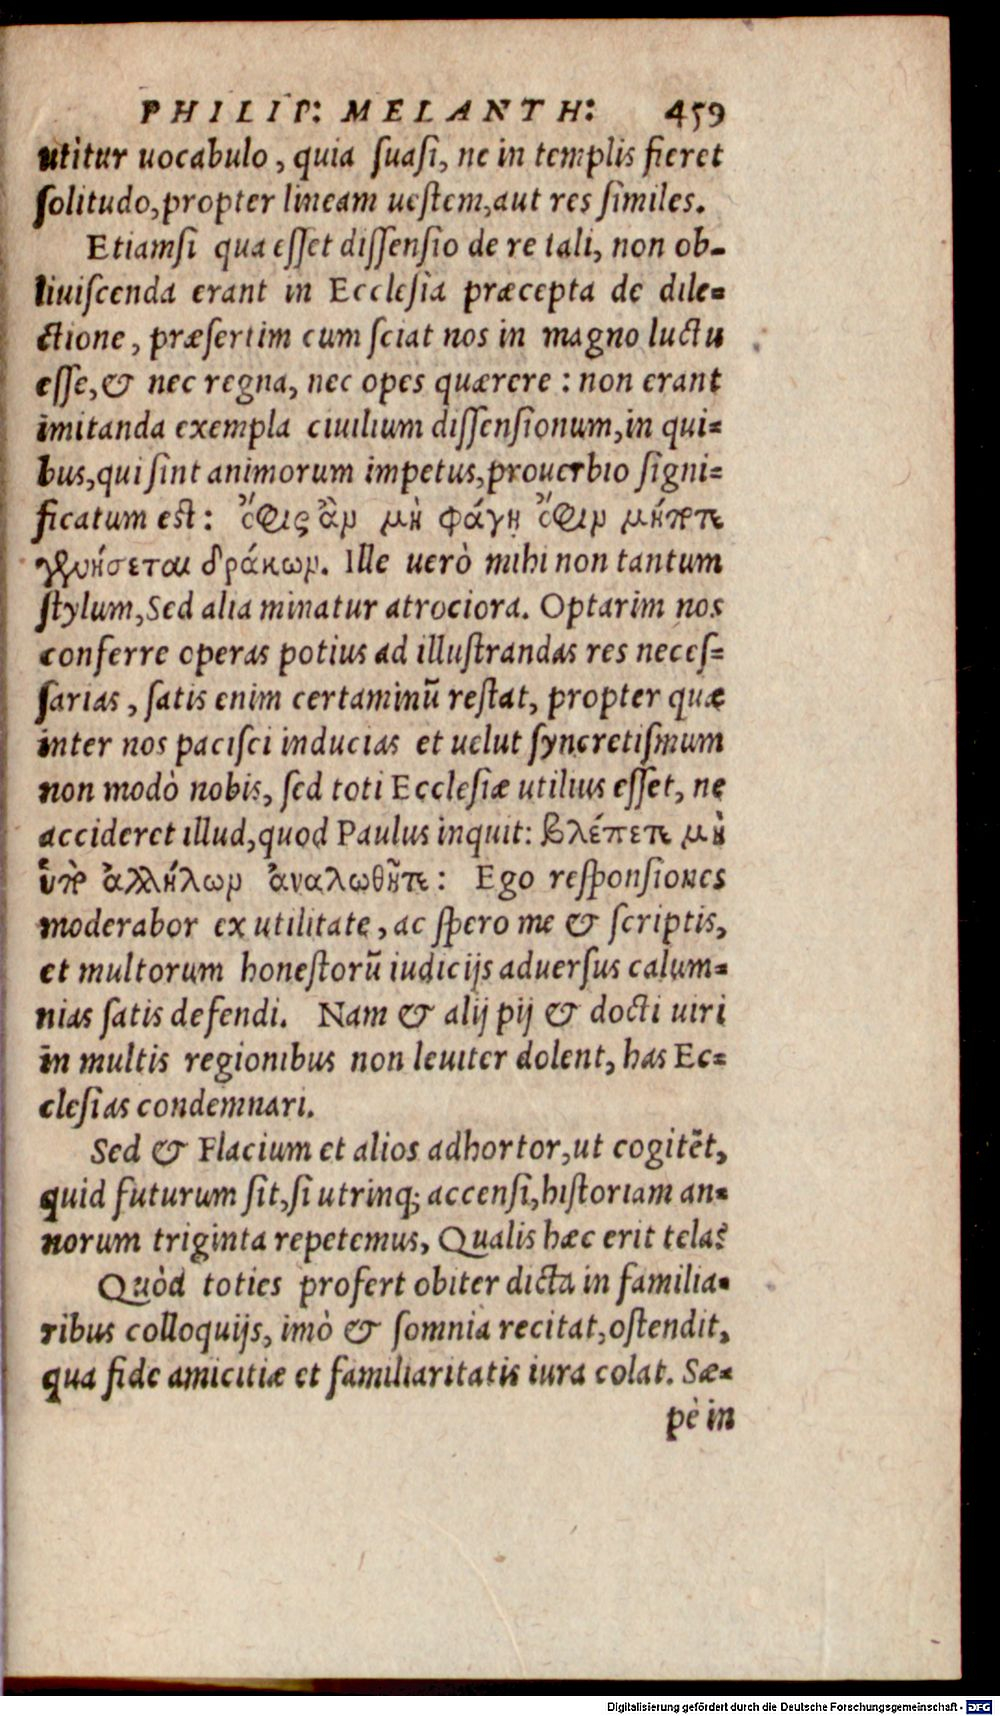 PHILIP: MELANTH: 459
utitur uocabulo, quia ſuaſi, ne in templis fieret
ſolitudo, propter lineam ueſtem, aut res ſimiles.
Etiamſi qua eſſet diſſenſio de re tali, non ob-
liuiſcenda erant in Eccleſia præcepta de dile=
ctione, præſertim cum ſciat nos in magno luctu
eſſe, & nec regna, nec opes quærere: non erant
imitanda exempla ciuilium diſſenſionum, in qui=
bus, qui ſint animorum impetus, prouerbio ſigni=
ficatum est: ὄφις ἂν μὴ φάγῃ ὄφιν μήποτε
γενήσεται δράκων. Ille uerò mihi non tantum
ſtylum, Sed alia minatur atrociora. Optarim nos
conferre operas potius ad illuſtrandas res neceſ=
ſarias, ſatis enim certaminū reſtat, propter quæ
inter nos paciſci inducias et uelut ſyncretiſmum
non modò nobis, ſed toti Eccleſiæ utilius eſſet, ne
accideret illud, quod Paulus inquit: βλέπετε μὴ
ὑπ' ἀλλήλων ἀναλωθῆτε: Ego reſponſiones
moderabor ex utilitate, ac ſpero me & ſcriptis,
et multorum honeſtorū iudicijs aduerſus calum=
nias ſatis defendi. Nam & alij pij & docti uiri
in multis regionibus non leuiter dolent, has Ec=
cleſias condemnari.
Sed & Flacium et alios adhortor, ut cogitēt,
quid futurum ſit, ſi utrinq; accenſi, hiſtoriam an=
norum triginta repetemus, Qualis hæc erit tela?
Quòd toties profert obiter dicta in familia=
ribus colloquijs, imò & ſomnia recitat, oſtendit,
qua fide amicitiæ et familiaritatis iura colat. Sæ=
pè in
Digitalisierung gefördert durch die Deutsche Forschungsgemeinschaft - DFG